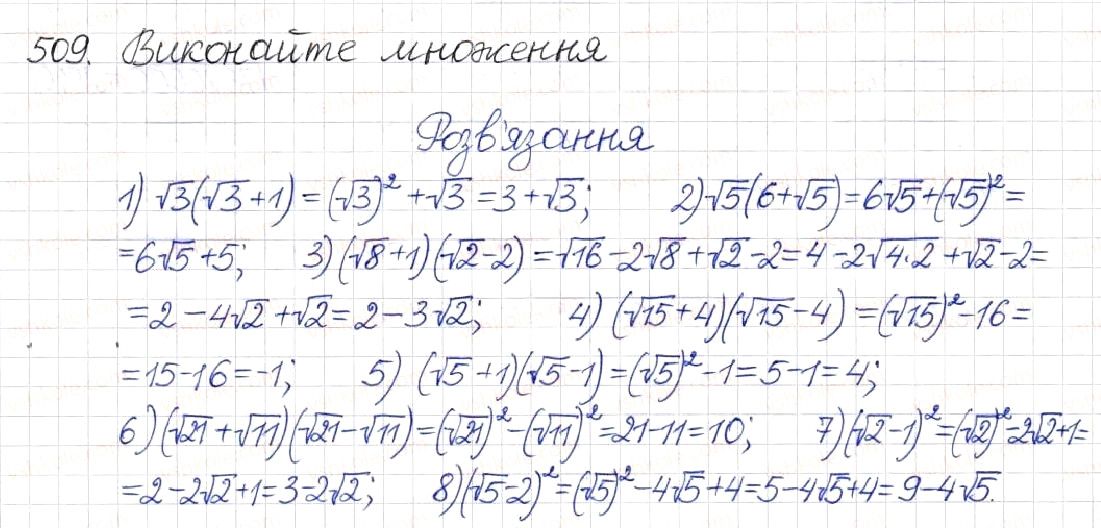 509. Виконайте множення
Розв'язання
1) √3(√3+1) = (√3)² + √3 = 3 + √3; 2) √5(6+√5) = 6√5+(√5)² =
= 6√5 + 5; 3) (√8+1)(√2-2) = √16 - 2√8 + √2 - 2 = 4 - 2√4·2 + √2 - 2 =
= 2 - 4√2 + √2 = 2 - 3√2; 4) (√15+4)(√15-4) = (√15)² - 16 =
= 15 - 16 = -1; 5) (√5+1)(√5-1) = (√5)² - 1 = 5 - 1 = 4;
6) (√21+√11)(√21-√11) = (√21)² - (√11)² = 21 - 11 = 10; 7) (√2-1)² = (√2)² - 2√2 + 1 =
= 2 - 2√2 + 1 = 3 - 2√2; 8) (√5-2)² = (√5)² - 4√5 + 4 = 5 - 4√5 + 4 = 9 - 4√5.